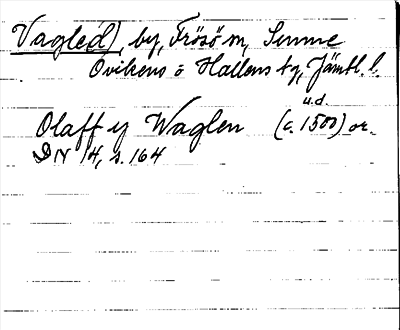 Vagled), by, Frösö sn, Sunne
Ovikens o Hallens tg, Jämtl. l.
u.d.
Olaff y Waglen (c. 1500) or.
DN 14, s. 164